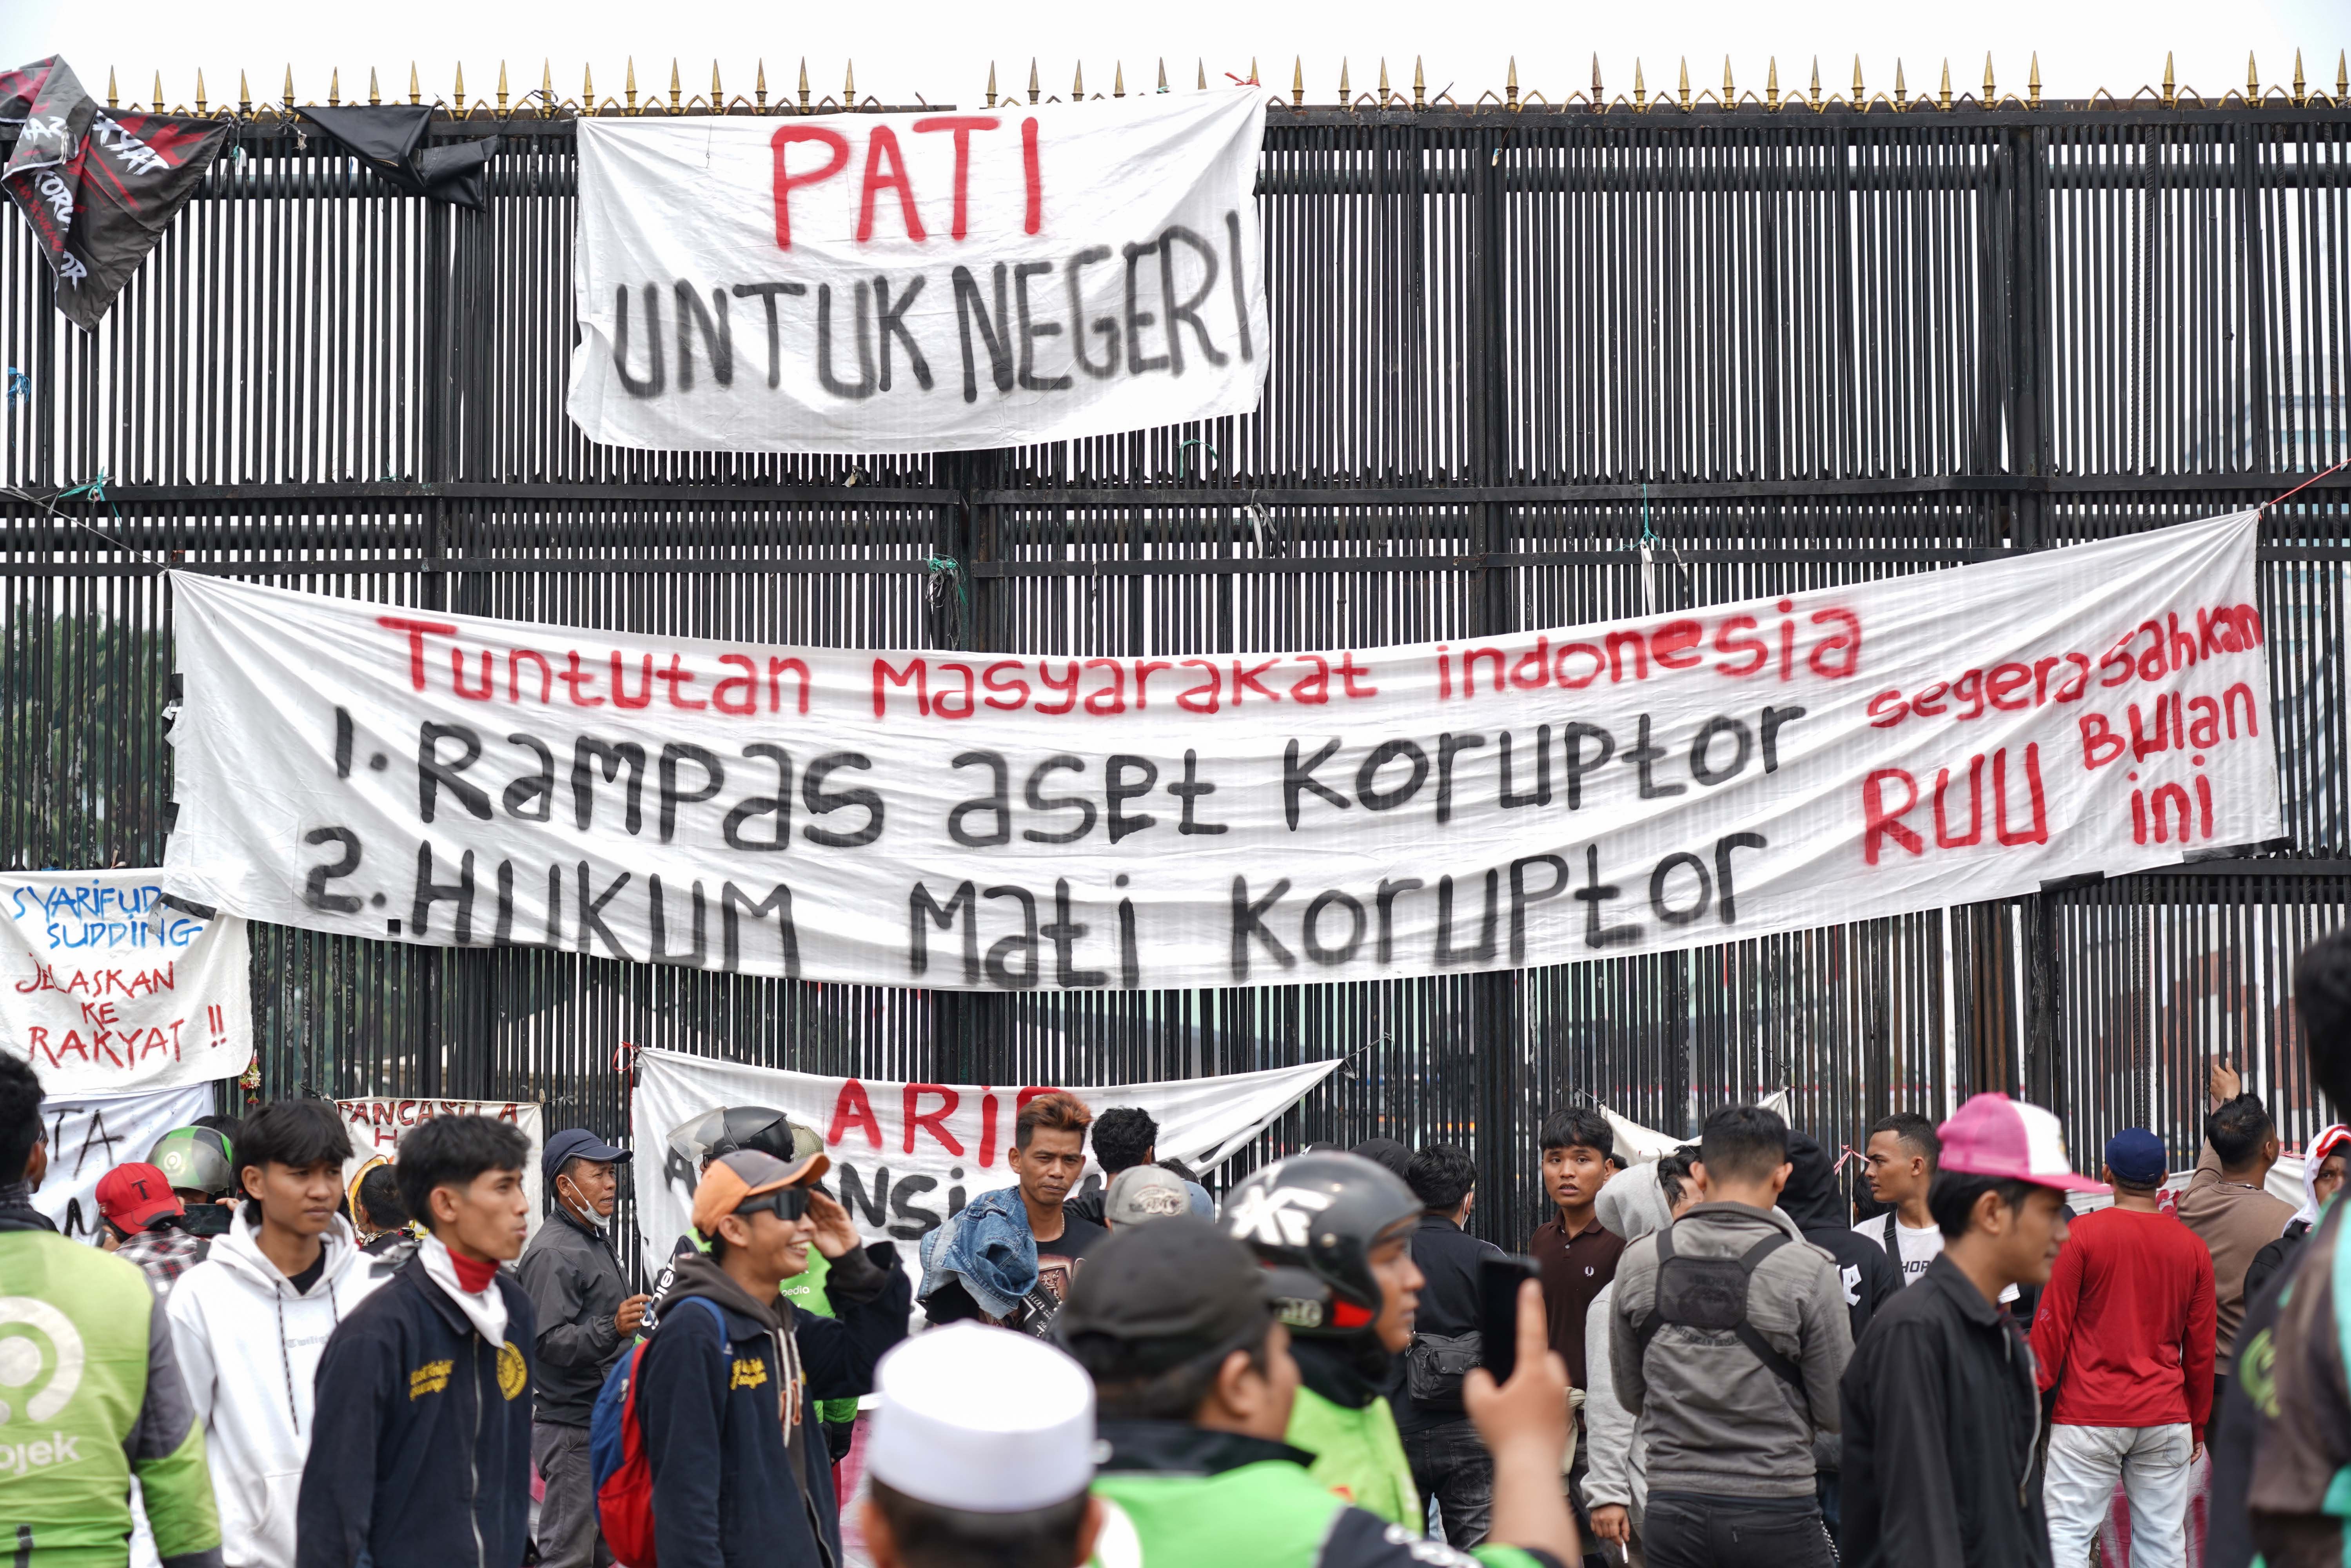 PATI
UNTUK NEGERI
Tuntutan Masyarakat indonesia
1. Rampas aset Koruptor
2. HUKUM Mati Koruptor
segera sahkan
RUU BULan
ini
SUDDING
JELASKAN
KE
RAKYAT !!
PANCASILA
T